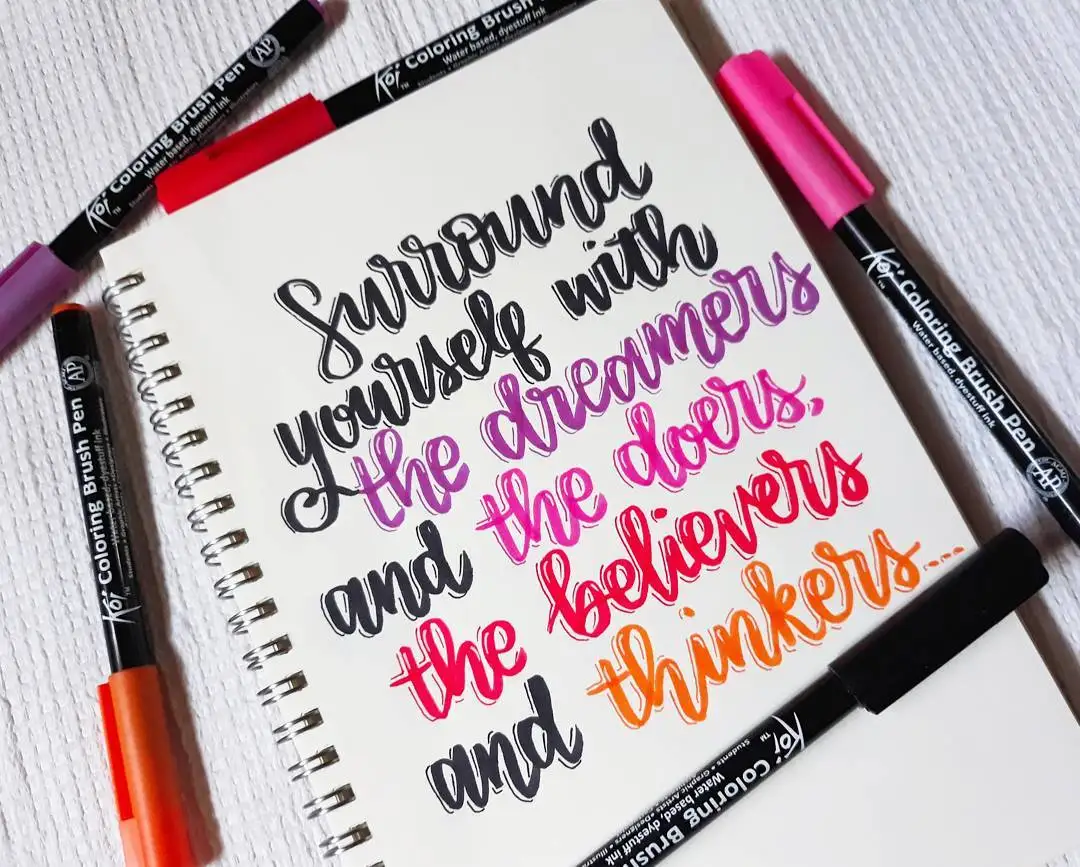 Surround
yourself with
the dreamers
and the doers,
the believers
and thinkers...
Koi Coloring Brush Pen
TM
Water based, dyestuff ink
AP
Koi Coloring Brush
TM
Water based, dyestuff ink
Koi Coloring Brush Pen
TM
Water based, dyestuff ink
AP
Koi Coloring Brush Pen
TM
Water based, dyestuff ink
AP
Koi Coloring Brush
TM
Water based, dyestuff ink
Students • Graphic Artists • Designers • Illustra